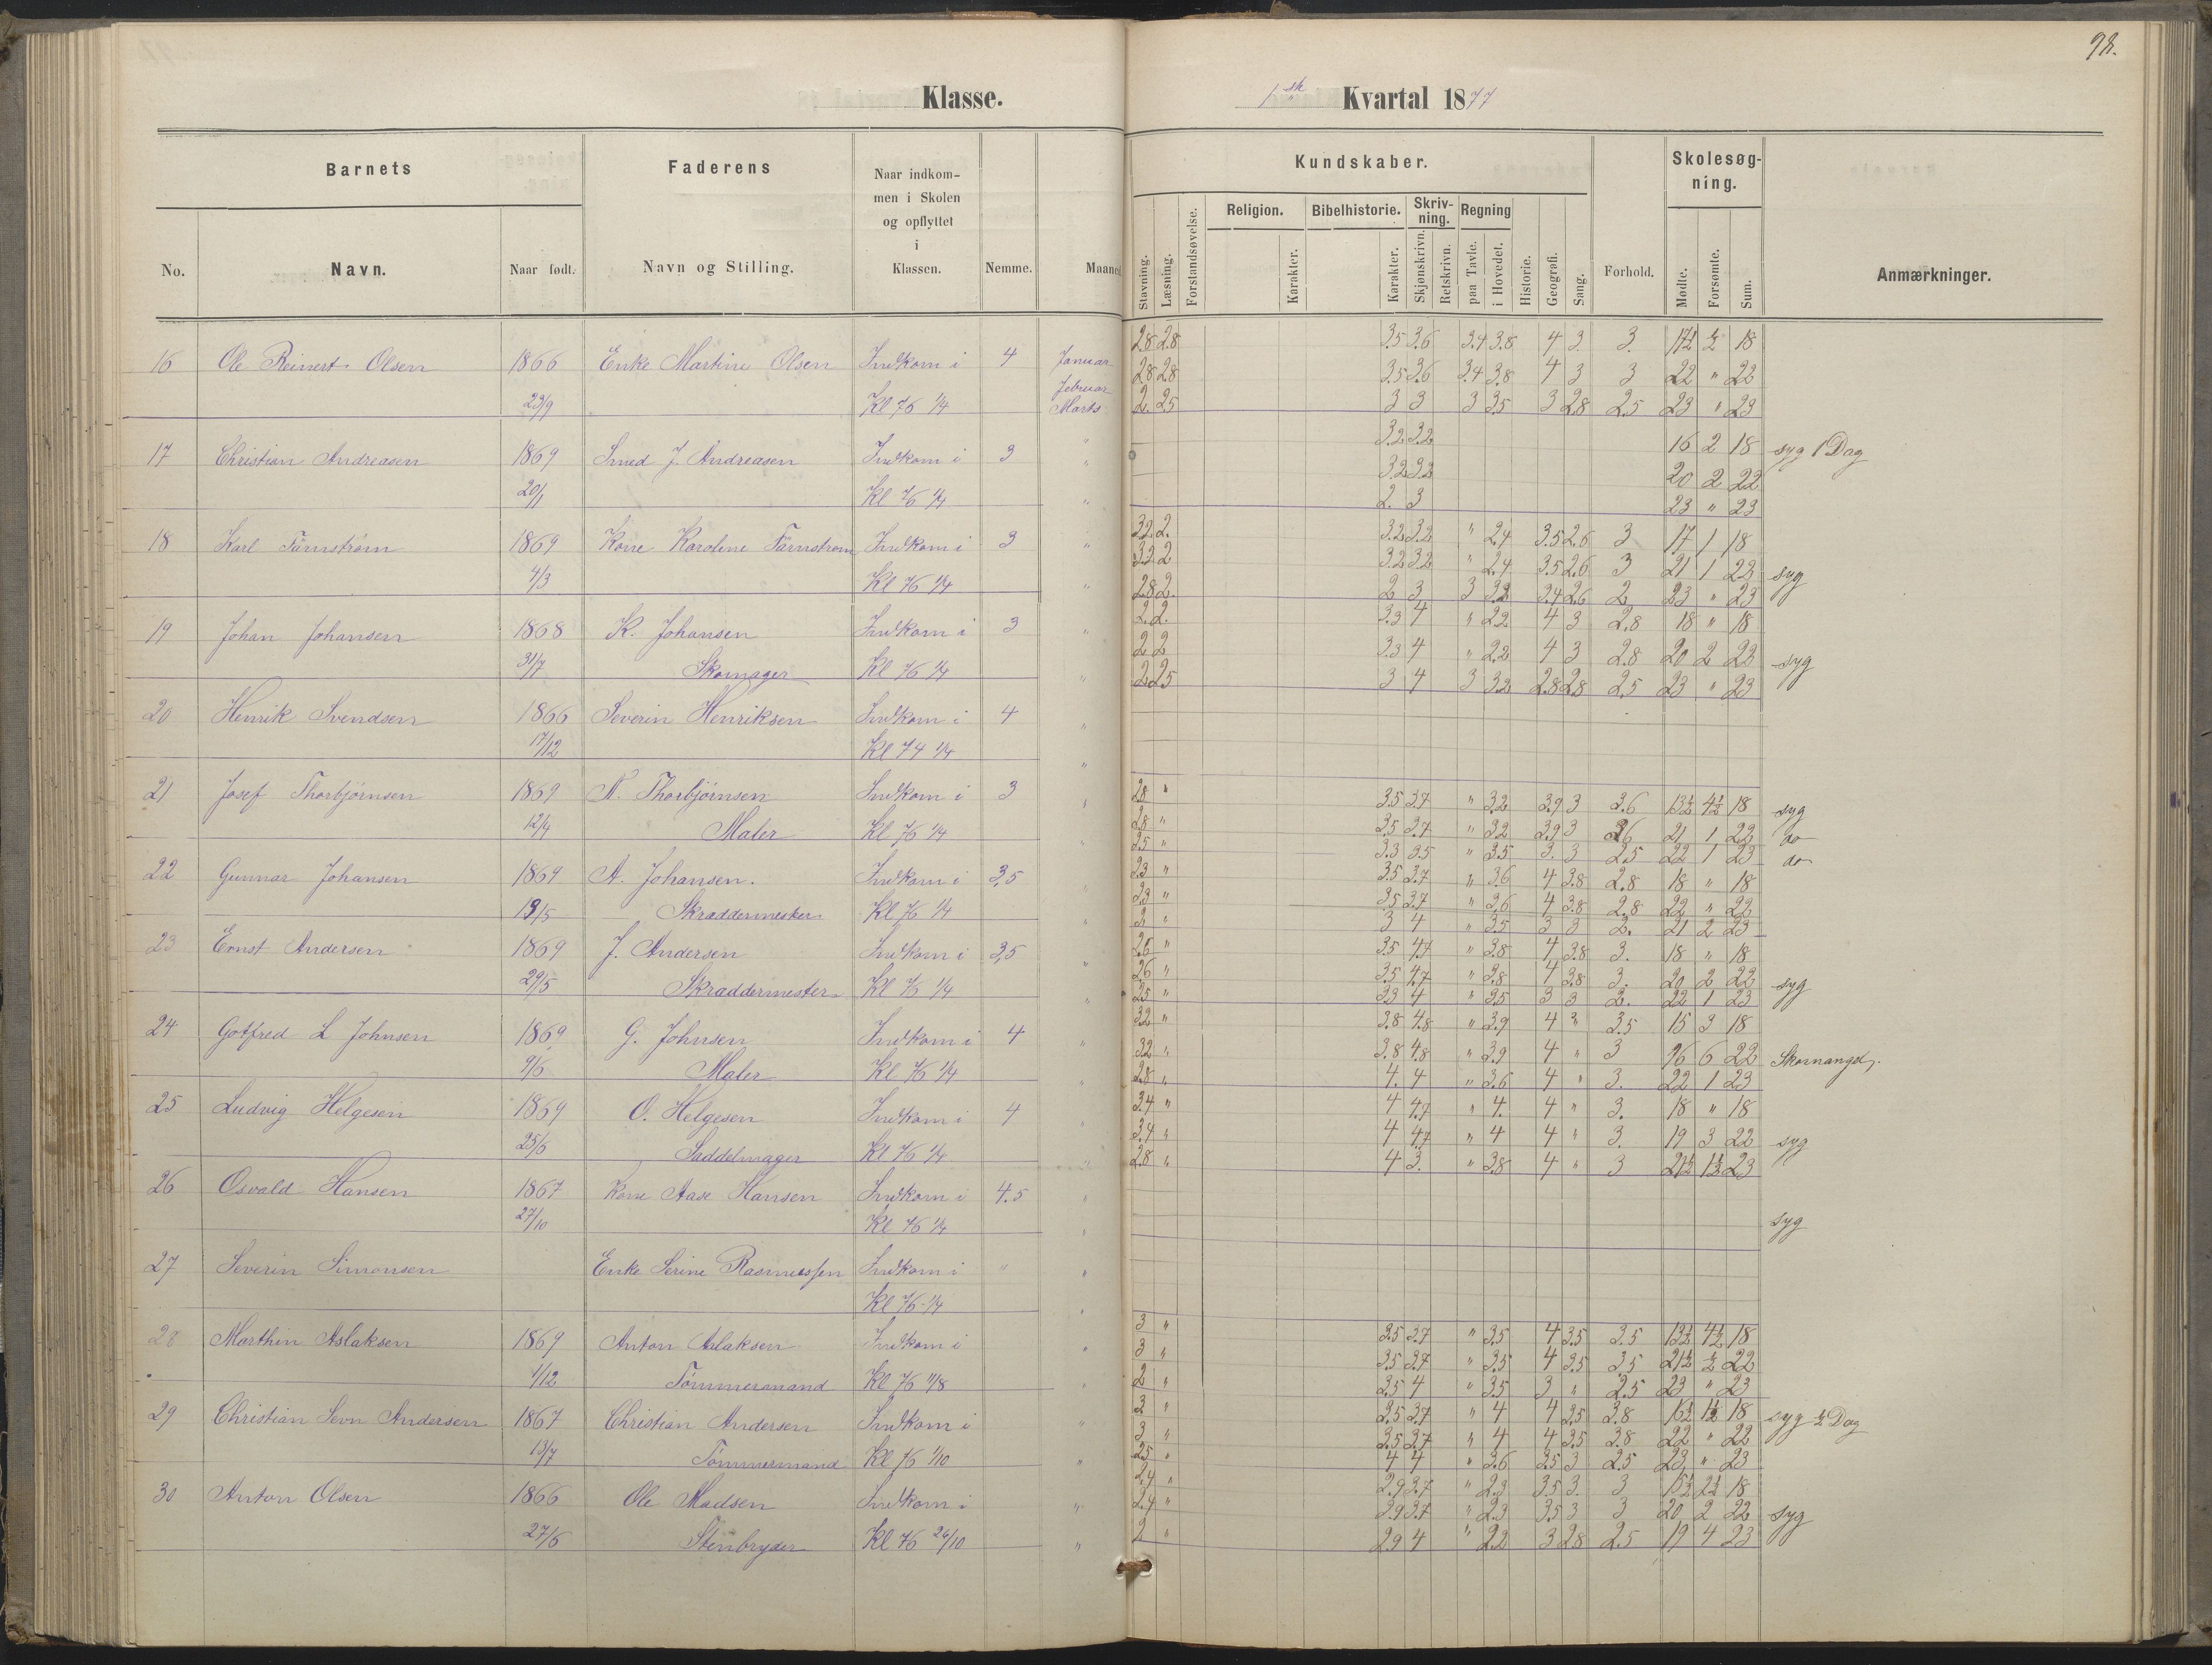 98.
Klasse.
1ste Kvartal 1877
Barnets
Faderens
Naar indkom-
men i Skolen
og opflyttet
i
Klassen.
No.
Navn.
Naar født.
Navn og Stilling.
Nemme.
Maaned
Kundskaber.
Skolesøg-
ning.
Religion.
Bibelhistorie.
Skriv-
ning.
Regning
Stavning.
Læsning.
Forstandsøvelse.
Karakter.
Karakter.
Skjønskrivn.
Retskrivn.
paa Tavle.
i Hovedet.
Historie.
Geografi.
Sang.
Forhold.
Mødte.
Forsømte.
Sum.
Anmærkninger.
16 Ole Reinert Olsen 1866 Enke Martine Olsen Indkom i 4 Januar
Februar
23/9 Kl 76 1/4 Marts
2.8 2.8 3.5 3.6 3.4 3.8 4 3 3. 17½ ½ 18
2.8 2.8 3.5 3.6 3.4 3.8 4 3 3 22 " 22
2. 2.5 3 3 3 3.5 3 2.8 2.5 23 " 23
17 Christian Andreasen 1869 Smed J. Andreasen Indkom i 3 "
20/1 Kl 76 1/4 "
3.2 3.2 16 2 18 syg 1 Dag
3.2 3.2 20 2 22
2. 3 23 " 23
18 Karl Färnström 1869 Kone Karoline Färnström Indkom i 3 "
4/3 Kl 76 1/4 "
3.2 2. 3.2 3.2 " 2.4 3.5 2.6 3 17 1 18
3.2 2 3.2 3.2 " 2.4 3.5 2.6 3 21 1 22 syg
2.8 2. 2 3 3 3.2 3.4 2.6 2 23 " 23
19 Johan Johansen 1868 K. Johansen Indkom i 3 "
31/7 Skomager Kl 76 1/4 "
2. 2. 3.3 4 " 2.2 4 3 2.8 18 " 18
2 2 3.3 4 " 2.2 4 3 2.8 20 2 22 syg
2 2.5 3 4 3 3.2 2.8 2.8 2.5 23 " 23
20 Henrik Svendsen 1866 Severin Henriksen Indkom i 4 "
17/12 Kl 74 1/4 "
21 Josef Thorbjörnsen 1869 N. Thorbjörnsen Indkom i 3 "
12/4 Maler Kl 76 1/4
2.8 " 3.5 3.7 " 3.2 3.9 3 3.6 13½ 4½ 18 syg
2.8 " 3.5 3.7 " 3.2 3.9 3 3.6 21 1 22 do
2.5 " 3.3 3.5 " 3.5 3. 3 2.5 22 1 23 do
22 Gunnar Johansen 1869 A. Johansen. Indkom i 3,5 "
13/5 Skræddermester Kl 76 1/4 "
2.3 " 3.5 3.7 " 3.6 4 3.8 2.8 18 " 18
2.3 " 3.5 3.7 " 3.6 4 3.8 2.8 22 " 22
2 " 3 4 " 3.5 3 3 2. 21 2 23
23 Ernst Andersen 1869 J. Andersen Indkom i 3,5 "
29/5 Skræddermester Kl 76 1/4 "
2.6 " 3.5 4.7 " 3.8 4 3.8 3. 18 " 18
2.6 " 3.5 4.7 " 3.8 4 3.8 3. 20 2 22 syg
2.5 " 3.3 4 " 3.5 3 3 2. 22 1 23
24 Gotfred L Johnsen 1869 G. Johnsen Indkom i 4 "
9/6 Maler Kl 76 1/4 "
3.2 " 3.8 4.8 " 3.9 4 " 3.5 15 3 18
3.2 " 3.8 4.8 " 3.9 4 " 3 16 6 22 Skomangel.
2.8 " 4. 4 " 3.6 4 " 3. 22 1 23
25 Ludvig Helgesen 1869 O. Helgesen Indkom i 4 "
25/6 Saddelmager Kl 76 1/4 "
3.4 " 4 4.7 " 4. 4 " 3. 18 " 18
3.4 " 4 4.7 " 4 4 " 3. 19 3 22 syg
2.8 " 4 3. " 3.8 4 " 3 21½ 1½ 23
26 Osvald Hansen 1867 Kone Aase Hansen Indkom i 4.5 "
27/10 Kl 76 1/4 "
syg
27 Severin Simonsen Enke Serine Rasmussen Indkom i " "
Kl 76 1/4 "
28 Marthin Aslaksen 1869 Anton Aslaksen Indkom i "
4/12 Tömmermand Kl 76 11/8 "
3 " 3.5 3.7 " 3.5 4 3.5 3.5 13½ 4½ 18
3 " 3.5 3.7 " 3.5 4 3.5 3.5 21½ ½ 22
2 " 3.5 4 " 3.5 3 " 2.5 23 " 23
29 Christian Sevn Andersen 1867 Christian Andersen Indkom i "
13/7 Tömmermand Kl 76 1/10 "
3 " 3.5 3.7 " 4 4 3.5 3.8 16½ 1½ 18 syg ½ Dag
3 " 3.5 3.7 " 4 4 3.5 3.8 22 " 22
2.5 " 4 4 " 3.6 3.5 3 2.5 23 " 23
30 Anton Olsen 1866 Ole Madsen Indkom i "
27/6 Stenbryder Kl 76 26/10 "
2.4 " 2.9 3.7 " 2.3 3.5 3. 3 15½ 2½ 18
2.4 " 3.9 3.7 " 2.3 3.5 3 3 20 2 22 syg
2 " 2.9 4 " 2.2 3 2.8 2.5 19 4 23